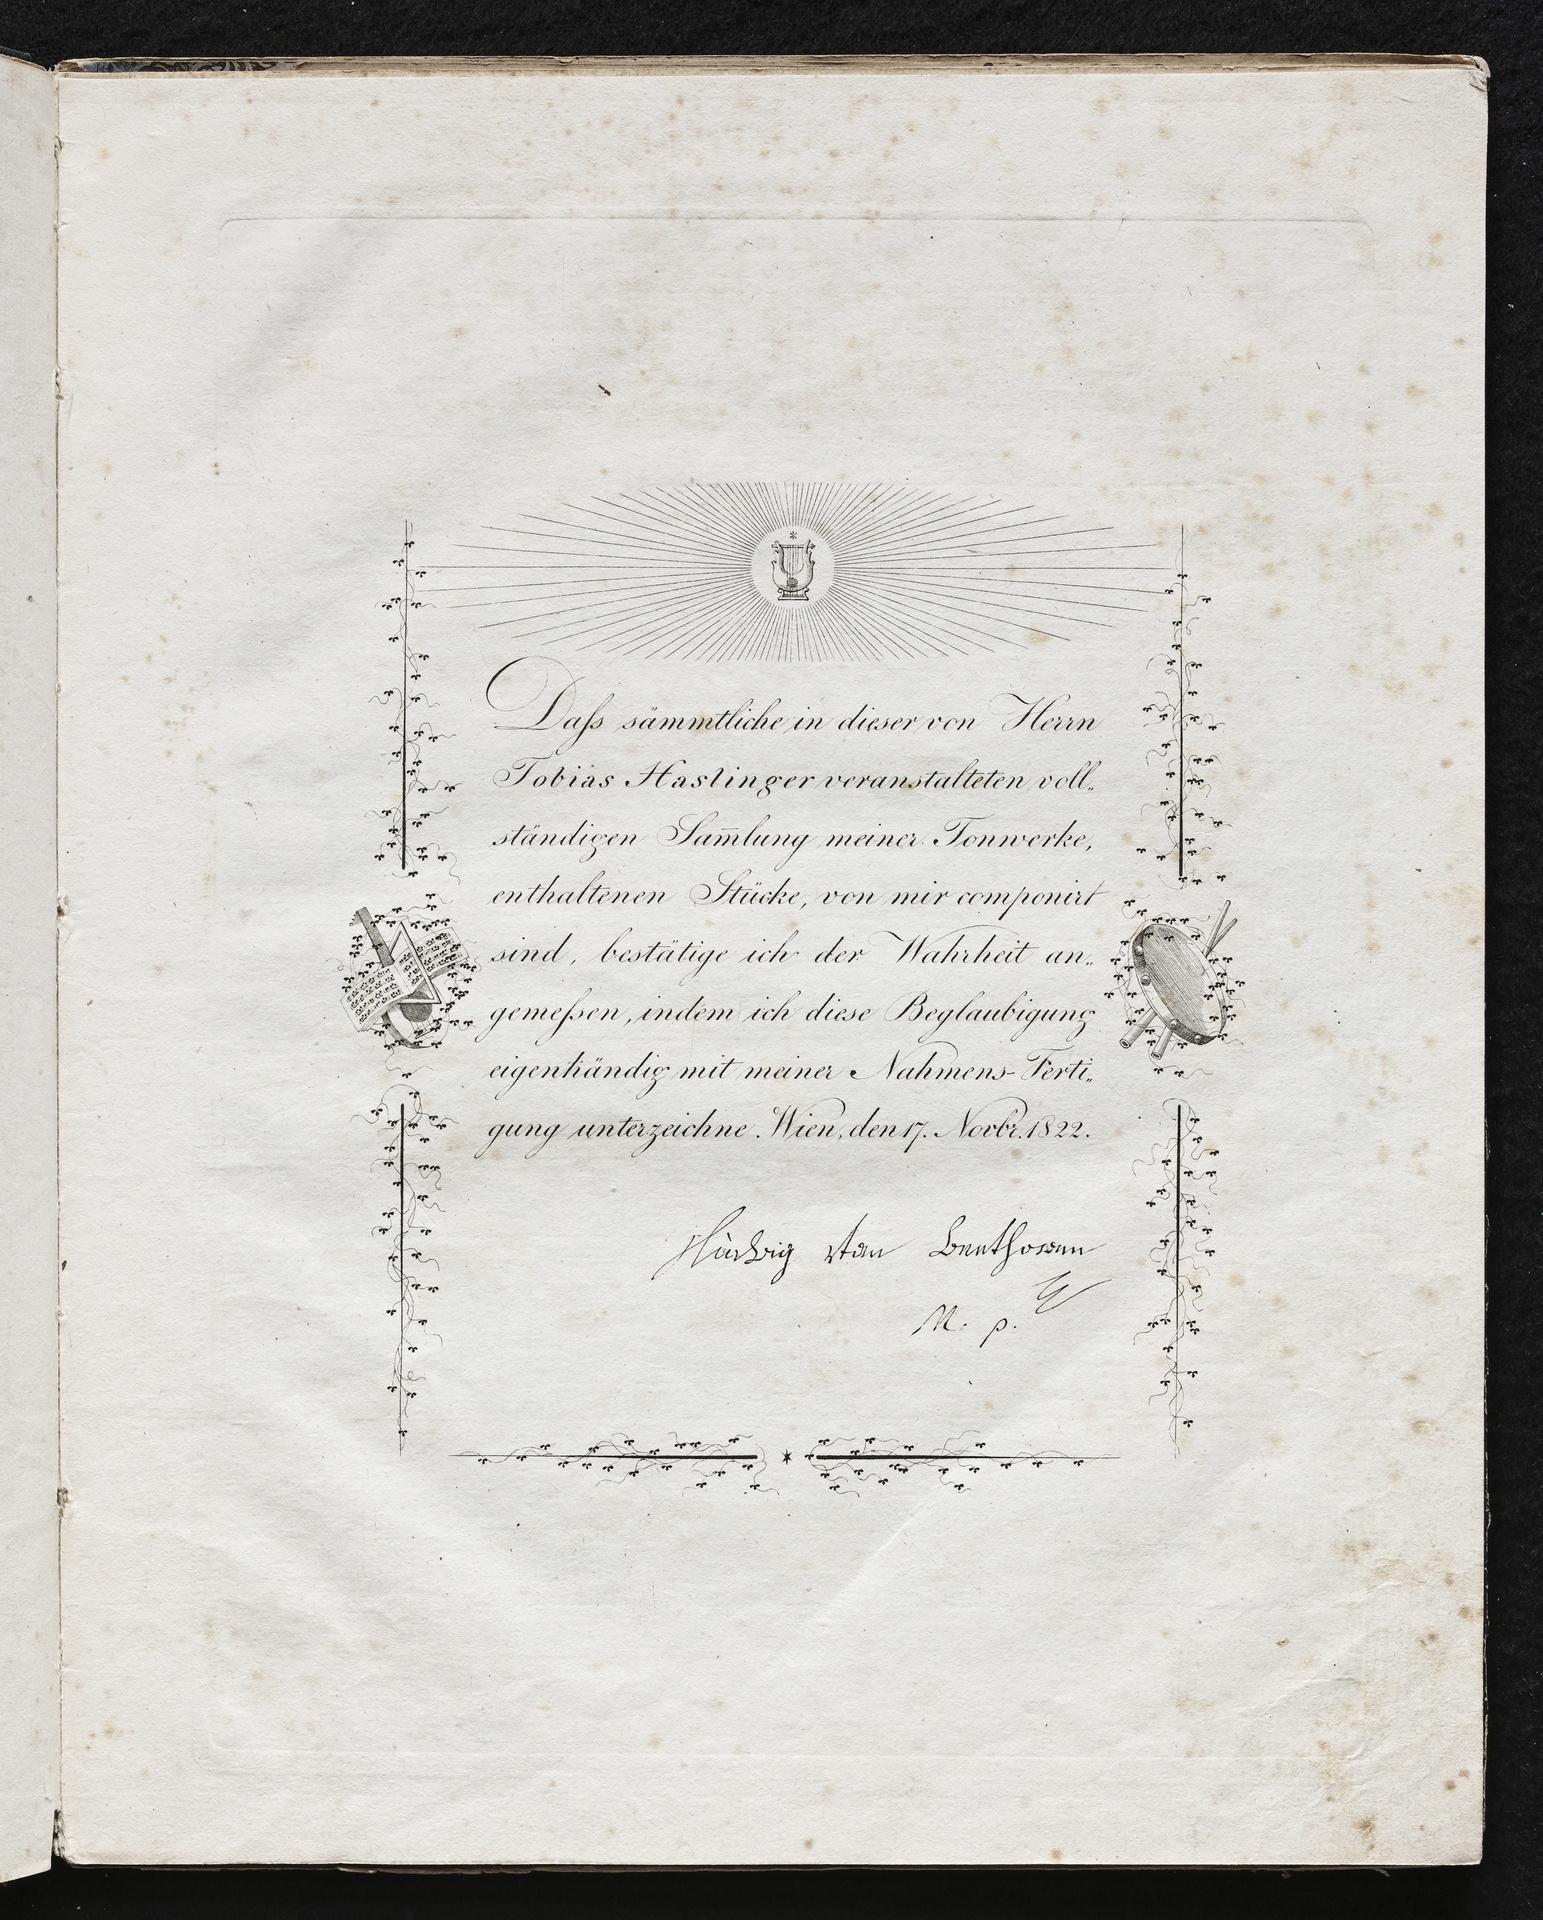 Daſs sämmtliche in dieser von Herrn
Tobias Haslinger veranstalteten voll„
ständigen Sam̅lung meiner Tonwerke,
enthaltenen Stücke, von mir componirt
sind, bestätige ich der Wahrheit an„
gemeſsen, indem ich diese Beglaubigung
eigenhändig mit meiner Nahmens-Ferti„
gung unterzeichne. Wien, den 17. Novbr. 1822.
Ludwig van Beethoven
M. p.